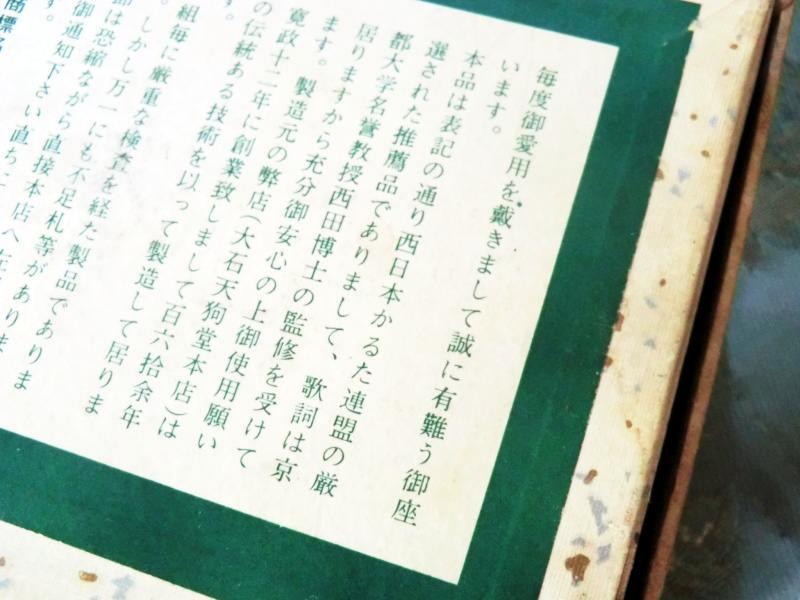 毎度御愛用を戴きまして誠に有難う御座
います。
本品は表記の通り西日本かるた連盟の厳
選された推薦品でありまして、歌詞は京
都大学名誉教授西田博士の監修を受けて
居りますから充分御安心の上御使用願い
ます。製造元の弊店(大石天狗堂本店)は
寛政十二年に創業致しまして百六拾余年
の伝統ある技術を以って製造して居りま
す。
組毎に厳重な検査を経た製品でありま
しかし万一にも不足札等がありま
品は恐縮ながら直接本店へ
御通知下さい直ちに
す。
商標